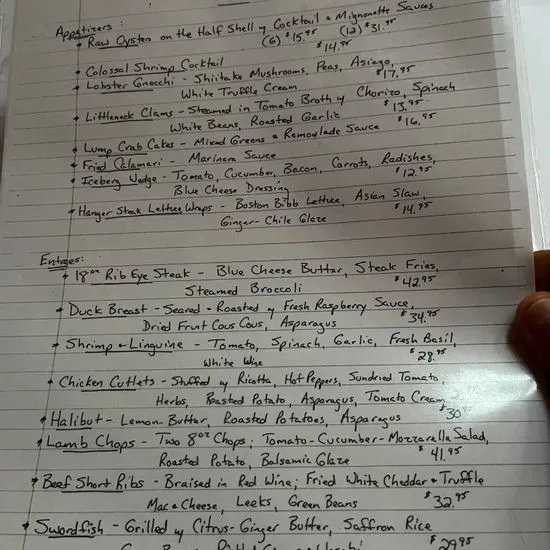 Appetizers:
• Raw Oyster on the Half Shell w/ Cocktail & Mignonette Sauces
(6) $15.95 (12) $31.95
• Colossal Shrimp Cocktail $14.95
• Lobster Gnocchi - Shiitake Mushrooms, Peas, Asiago,
White Truffle Cream $17.95
• Littleneck Clams - Steamed in Tomato Broth w/ Chorizo, Spinach
White Beans, Roasted Garlic $13.95
• Lump Crab Cakes - Mixed Greens & Remoulade Sauce $16.95
• Fried Calamari - Marinara Sauce
• Iceberg Wedge - Tomato, Cucumber, Bacon, Carrots, Radishes,
Blue Cheese Dressing $12.95
• Hanger Steak Lettuce Wraps - Boston Bibb Lettuce, Asian Slaw,
Ginger-Chile Glaze $14.95
Entrees:
• 18oz Rib Eye Steak - Blue Cheese Butter, Steak Fries,
Steamed Broccoli $42.95
• Duck Breast - Seared & Roasted w/ Fresh Raspberry Sauce,
Dried Fruit Cous Cous, Asparagus $34.95
• Shrimp & Linguine - Tomato, Spinach, Garlic, Fresh Basil,
White Wine $28.95
• Chicken Cutlets - Stuffed w/ Ricotta, Hot Peppers, Sundried Tomato,
Herbs, Roasted Potato, Asparagus, Tomato Cream
• Halibut - Lemon-Butter, Roasted Potatoes, Asparagus $30
• Lamb Chops - Two 8oz Chops; Tomato-Cucumber-Mozzarella Salad,
Roasted Potato, Balsamic Glaze $41.95
• Beef Short Ribs - Braised in Red Wine; Fried White Cheddar & Truffle
Mac & Cheese, Leeks, Green Beans $32.95
• Swordfish - Grilled w/ Citrus-Ginger Butter, Saffron Rice
$29.95